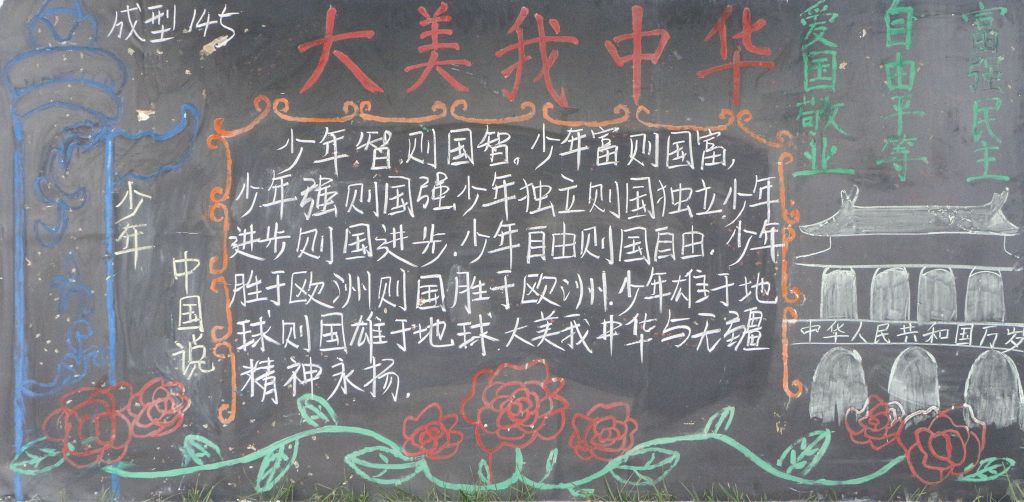 成型145
大美我中华
富强民主
自由平等
爱国敬业
少年
中国说
少年智则国智。少年富则国富,
少年强则国强少年独立则国独立.少年
进步则国进步.少年自由则国自由.少年
胜于欧洲则国胜于欧洲.少年雄于地
球则国雄于地球.大美我中华与无疆
精神永扬.
中华人民共和国万岁